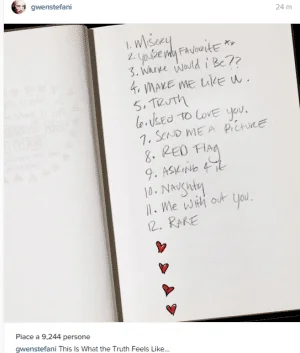 gwenstefani
24 m
1. Misery
2. You're my FAVORITE **
3. Where would i Be??
4. MAKE ME LIKE U.
5. TRUTH
6. USED TO LOVE you.
7. SEND ME A PICTURE
8. RED FlAg
9. ASKING 4 it
10. NAUghty
11. Me With out You.
12. RARE
Piace a 9,244 persone
gwenstefani This Is What the Truth Feels Like...